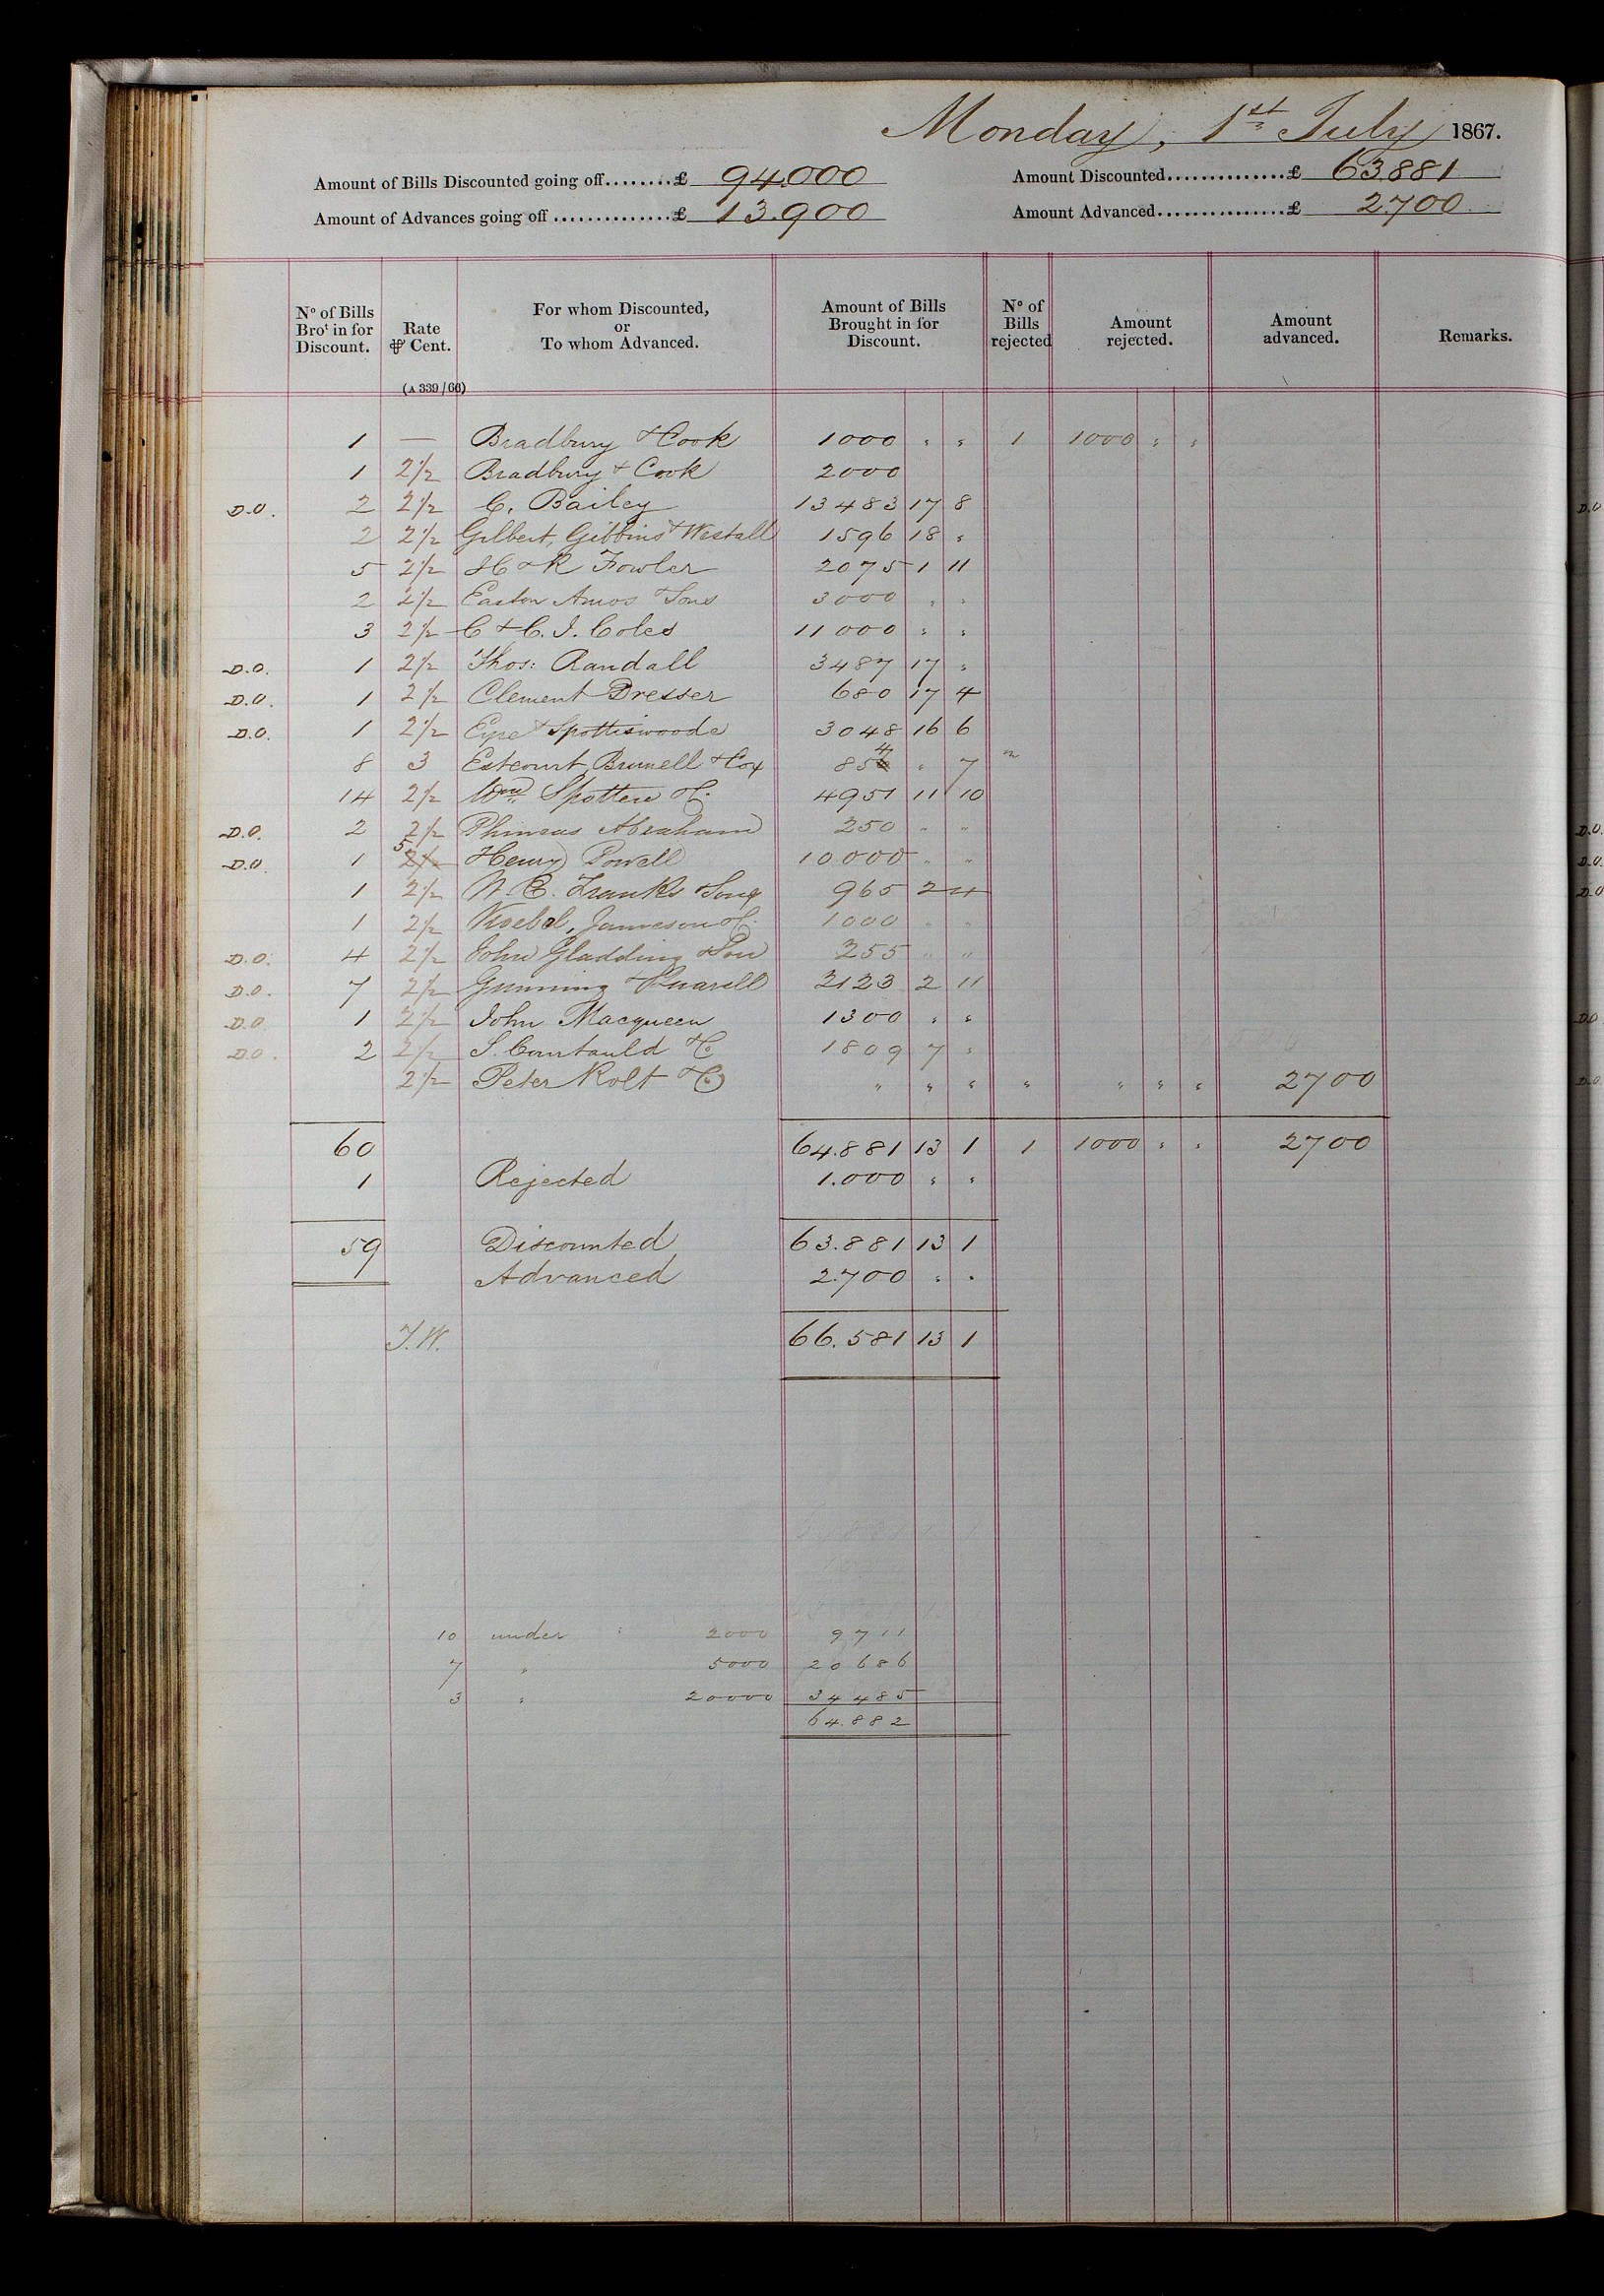 Monday, 1st July 1867.
Amount of Bills Discounted going off........£ 94.000 Amount Discounted..............£ 63881
Amount of Advances going off..............£ 13.900 Amount Advanced...............£ 2700
No of Bills Brot in for Discount. Rate ⅌ Cent. For whom Discounted, or To whom Advanced. Amount of Bills Brought in for Discount. No of Bills rejected Amount rejected. Amount advanced. Remarks.
(A 339/66)
1 — Bradbury & Cook 1000 " " 1 1000 " "
1 2½ Bradbury & Cook 2000
D.O. 2 2½ C. Bailey 13483 17 8
2 2½ Gilbert, Gibbins & Westall 1596 18 "
5 2½ H & R Fowler 2075 1 11
2 2½ Easton Amos & Sons 3000 " "
3 2½ C & C. J. Coles 11000 " "
D.O. 1 2½ Thos: Randall 3487 17 "
D.O. 1 2½ Clement Dresser 680 17 4
D.O. 1 2½ Eyre & Spottiswoode 3048 16 6
8 3 Estcourt Brunell & Cox 854 " 7
14 2½ Wm Spotten & C. 4951 11 10
D.O. 2 2½ Phineas Abraham 250 " "
D.O. 1 5 2½ Henry Powell 10.000 " "
1 2½ Franks & Sons 965 2 4
1 2½ Jameson & C. 1000 " "
D.O. 4 2½ John Gladding & Son 255 " "
D.O. 7 2½ Gunning & 2123 2 11
D.O. 1 2½ John Macqueen 1300 " "
D.O. 2 2½ S. Courtauld & Co 1809 7 "
2½ Peter Rolt & Co " " " " " " " 2700
60 64.881 13 1 1 1000 " " 2700
1 Rejected 1.000 " "
59 Discounted 63.881 13 1
Advanced 2.700 " "
J.W. 66.581 13 1
10 under " 2000 9711
7 " 5000 20686
3 " 20000 34485
64.882